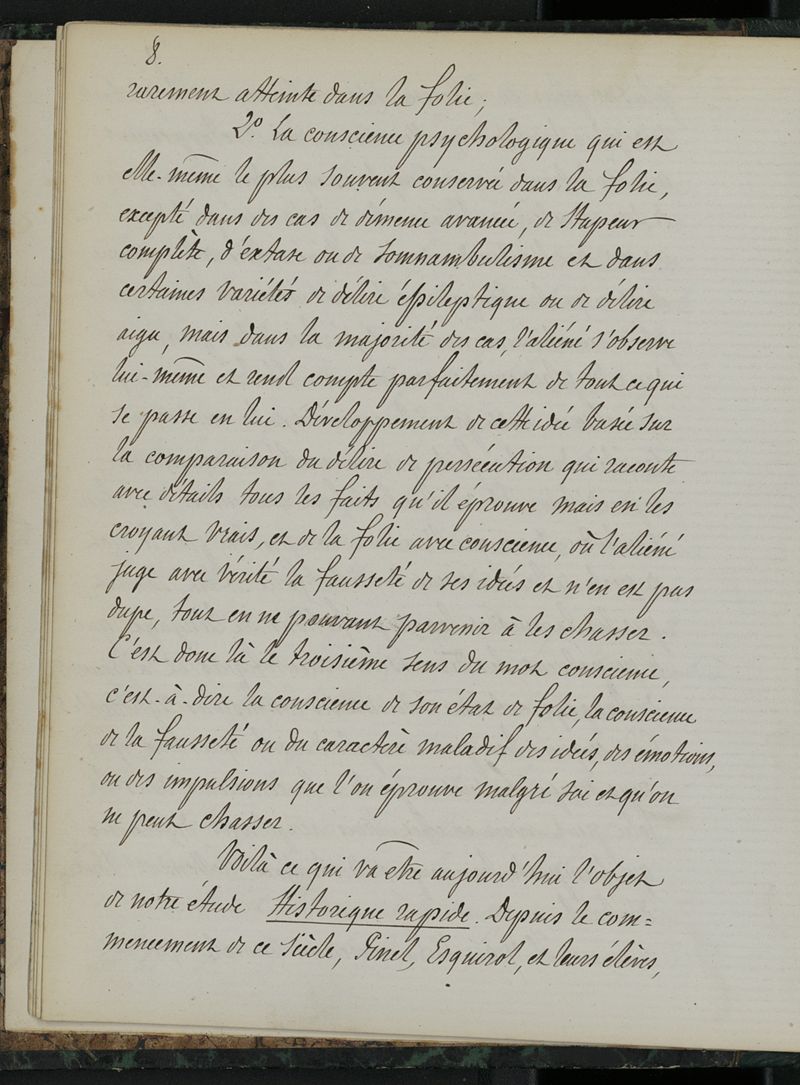 8.
rarement atteinte dans la folie ;
2° La conscience psychologique qui est
elle-même le plus souvent conservée dans la folie,
excepté dans des cas de démence avancée, de stupeur
complète, d'extase ou de somnambulisme et dans
certaines variétés de délire épileptique ou de délire
aigu, mais dans la majorité des cas, l'aliéné s'observe
lui-même et rend compte parfaitement de tout ce qui
se passe en lui. Développement de cette idée basée sur
la comparaison du délire de persécution qui raconte
avec détails tous les faits qu'il éprouve mais en les
croyant vrais, et de la folie avec conscience, où l'aliéné
juge avec vérité la fausseté de ses idées et n'en est pas
dupe, tout en ne pouvant parvenir à les chasser.
C'est donc là le troisième sens du mot conscience,
c'est-à-dire la conscience de son état de folie, la conscience
de la fausseté ou du caractère maladif des idées, des émotions,
ou des impulsions que l'on éprouve malgré soi et qu'on
ne peut chasser.
Voilà ce qui va être aujourd'hui l'objet
de notre étude Historique rapide. Depuis le com=
mencement de ce siècle, Pinel, Esquirol, et leurs élèves,